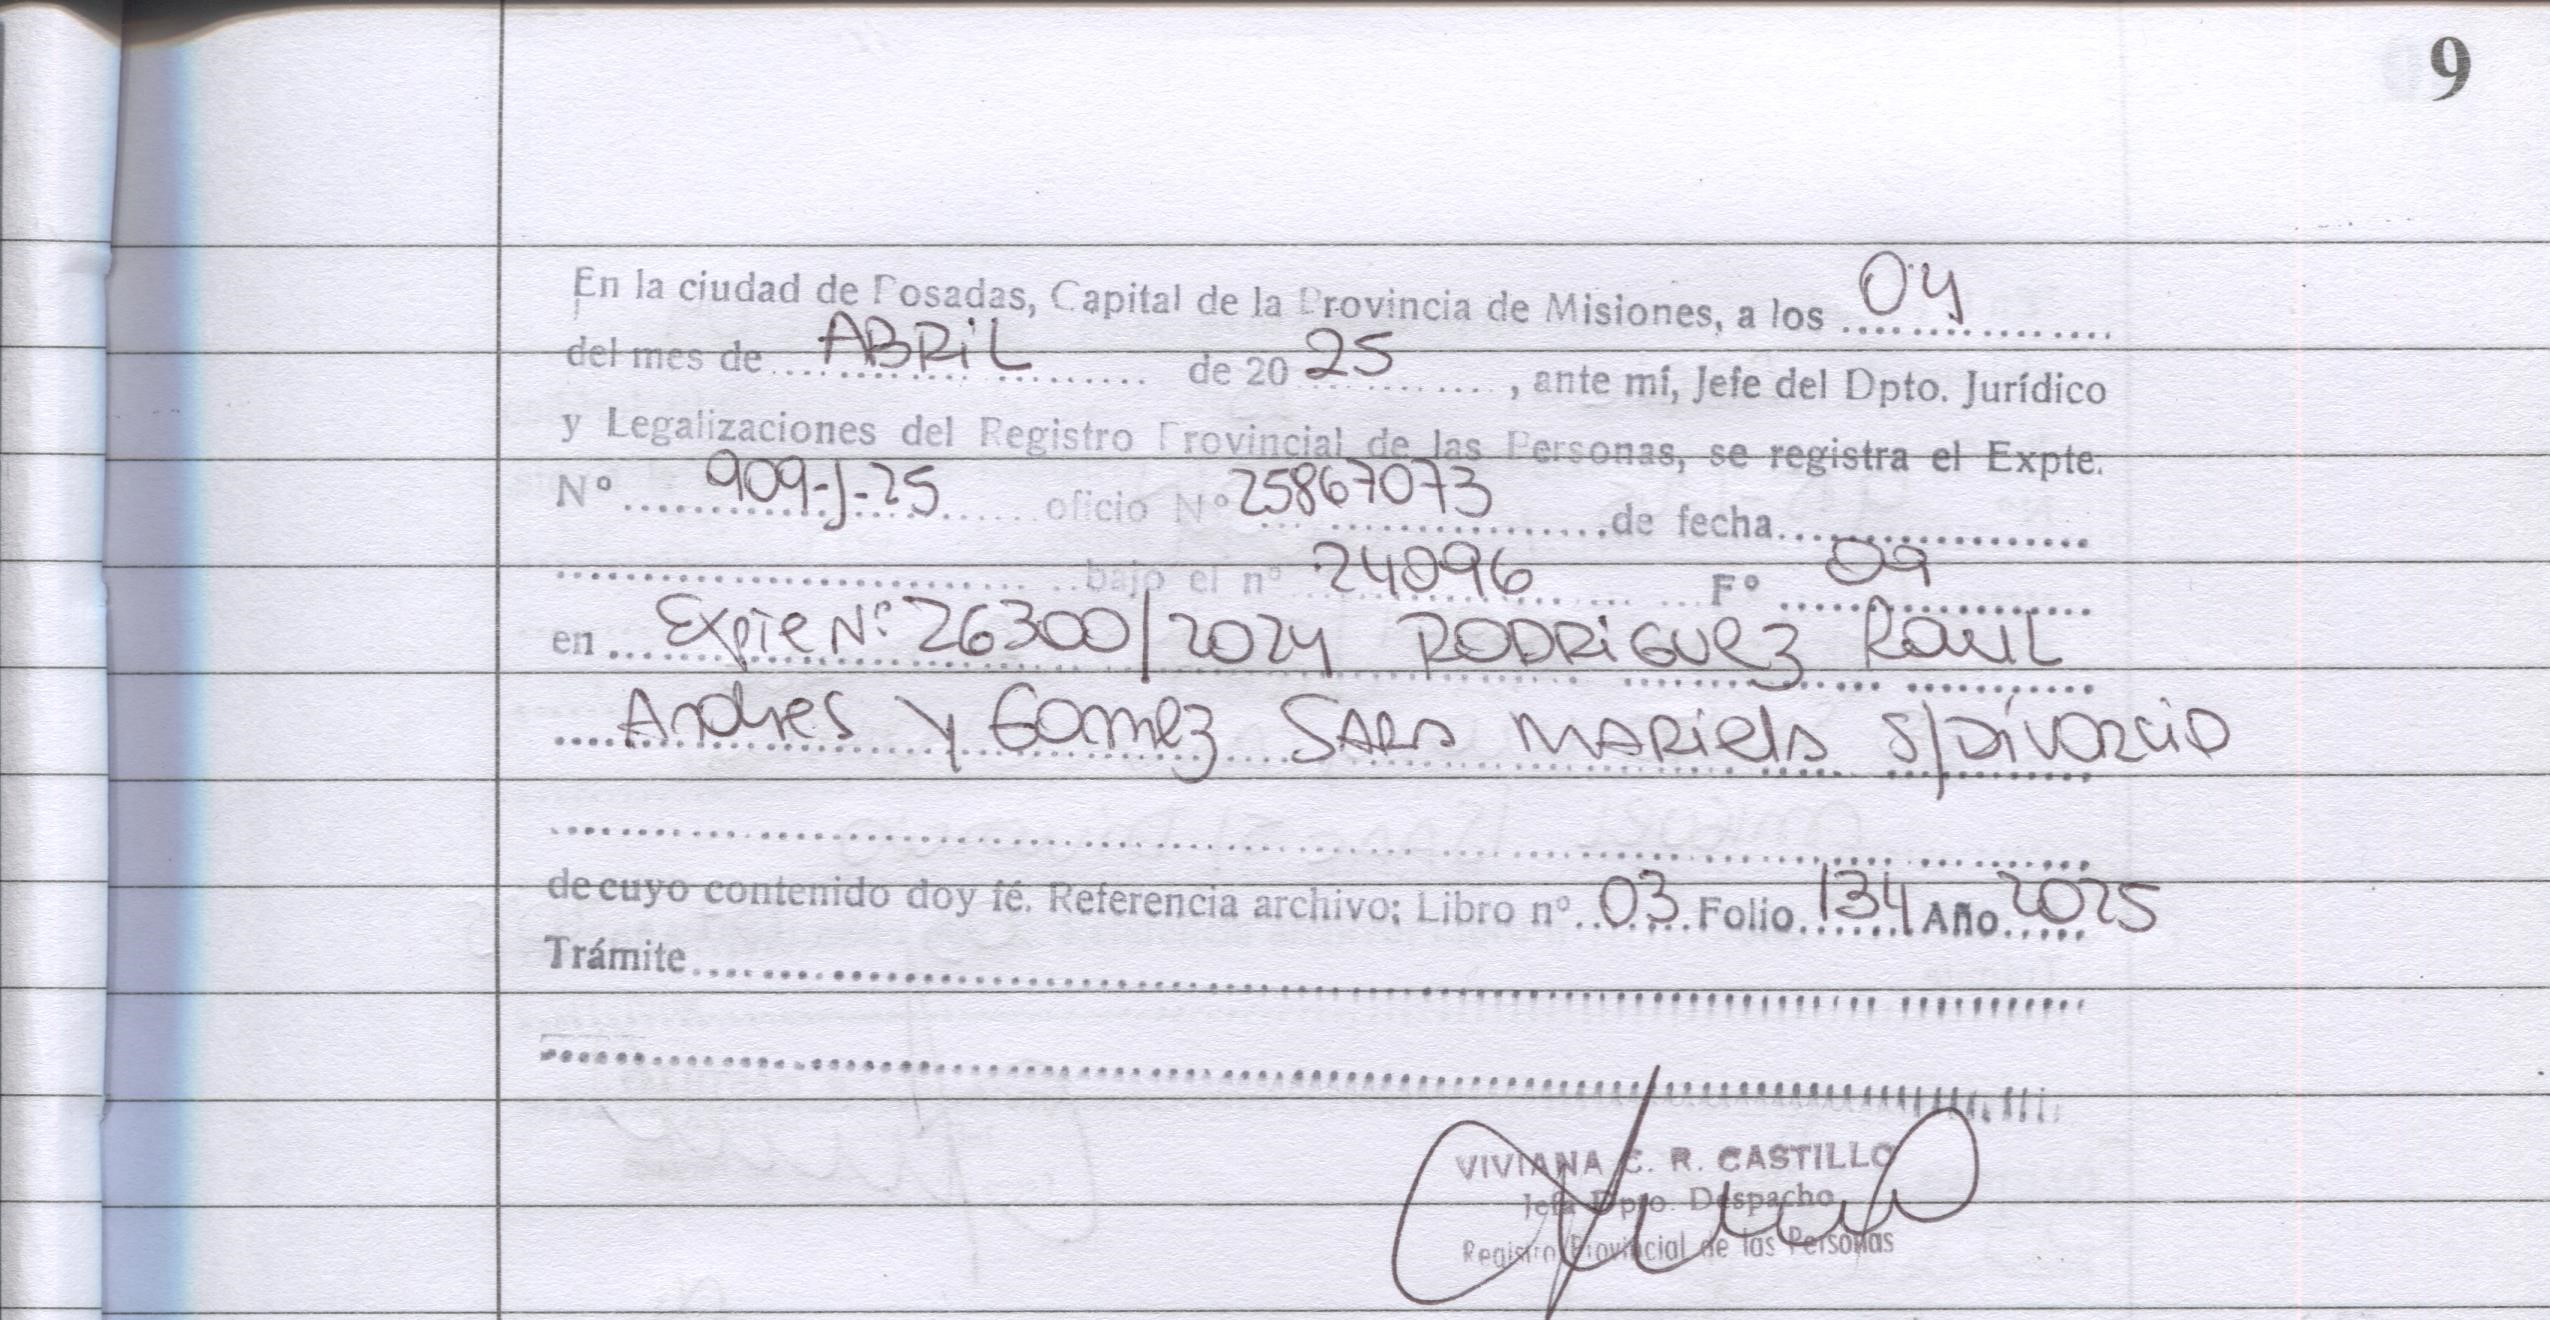 9
En la ciudad de Posadas, Capital de la Provincia de Misiones, a los 04
del mes de ABRiL de 20 25, ante mí, Jefe del Dpto. Jurídico
y Legalizaciones del Registro Provincial de las Personas, se registra el Expte.
N° 909-J-25 oficio N° 25867073 de fecha
bajo el n° 24096 F° 09
en Expte N° 26300/2024 RODRiGUez RaUL
Andres y Gomez SARA MARiela S/DiVORciO
de cuyo contenido doy fé. Referencia archivo: Libro n° 03 Folio 134 Año 2025
Trámite
VIVIANA C. R. CASTILLO
Jefa Dpto. Despacho
Registro Provincial de las Personas